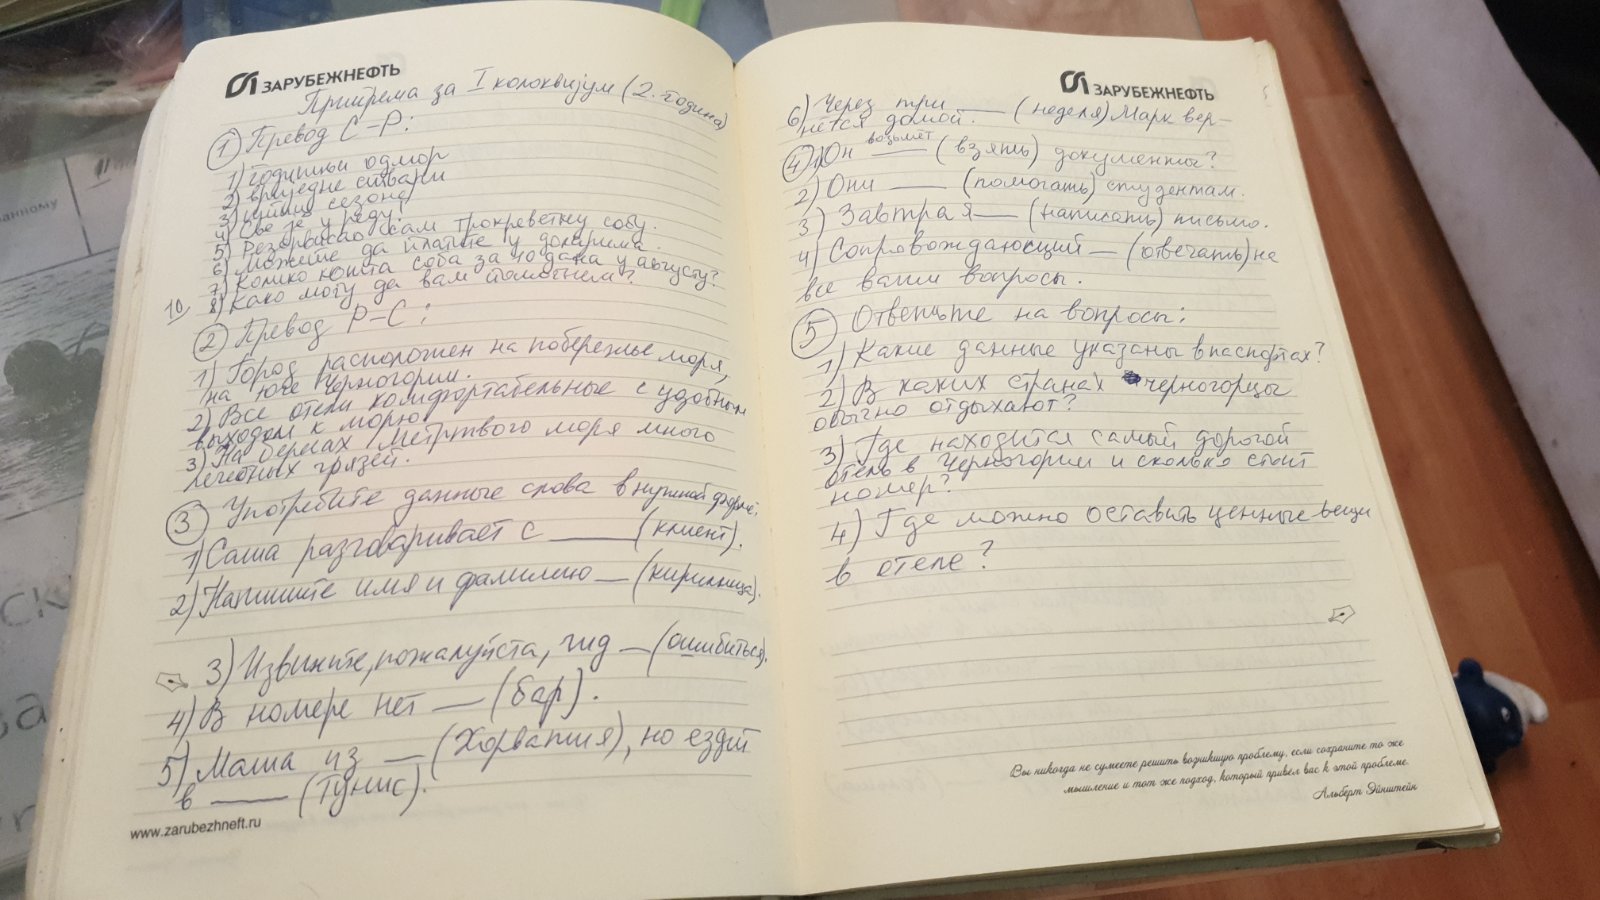 ЗАРУБЕЖНЕФТЬ
Припрема за I колоквијум (2. година)
① Превод С–Р:
1) годишњи одмор
2) вриједне ствари
3) љетња сезона
4) Све је у реду.
5) Резервисао сам трокреветну собу.
6) Можете да платите у доларима.
7) Колико кошта соба за 10 дана у августу?
10, 8) Како могу да вам помогнем?
② Превод Р–С:
1) Город расположен на побережье моря,
на юге Черногории.
2) Все отели комфортабельные с удобным
выходом к морю.
3) На берегах Мёртвого моря много
лечебных грязей.
③ Употребите данные слова в нужной форме:
1) Саша разговаривает с ____ (клиент).
2) Напишите имя и фамилию __ (кириллица).
3) Извините, пожалуйста, гид __ (ошибиться).
4) В номере нет __ (бар).
5) Маша из __ (Хорватия), но ездит
в ____ (Тунис).
www.zarubezhneft.ru
ЗАРУБЕЖНЕФТЬ
6) Через три ___ (неделя) Марк вер-
нётся домой.
возьмёт
④ 1) Он ____ (взять) документы?
2) Они ____ (помогать) студентам.
3) Завтра я ___ (написать) письмо.
4) Сопровождающий __ (отвечать) на
все ваши вопросы.
⑤ Ответьте на вопросы:
1) Какие данные указаны в паспортах?
2) В каких странах черногорцы
обычно отдыхают?
3) Где находится самый дорогой
отель в Черногории и сколько стоит
номер?
4) Где можно оставить ценные вещи
в отеле?
Вы никогда не сумеете решить возникшую проблему, если сохраните то же
мышление и тот же подход, который привёл вас к этой проблеме.
Альберт Эйнштейн